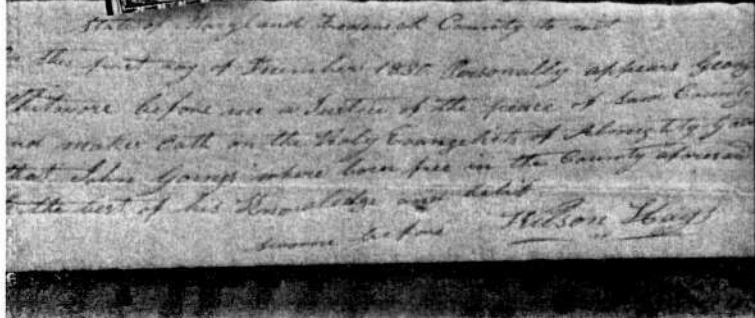 State of Maryland Frederick County to wit
the first day of December 1835 Personally appears Georg
Whitmore before me a Justice of the peace of Said County
nd makes Oath on the Holy Evangelists of Almighty God
that John Goings where born free in the County aforesaid
t the best of his Knowledge and belief
sworn before Wilson Hays